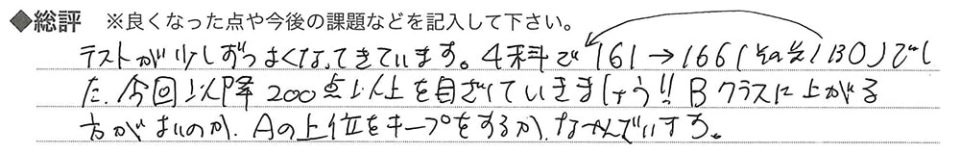 ◆総評 ※良くなった点や今後の課題などを記入して下さい。
テストが少しずつよくなってきています。4科で161→166(その前130)でし
た。今回以降200点以上を目ざしていきましょう!!Bクラスに上がる
方がよいのか、Aの上位をキープをするか、なやんでいます。